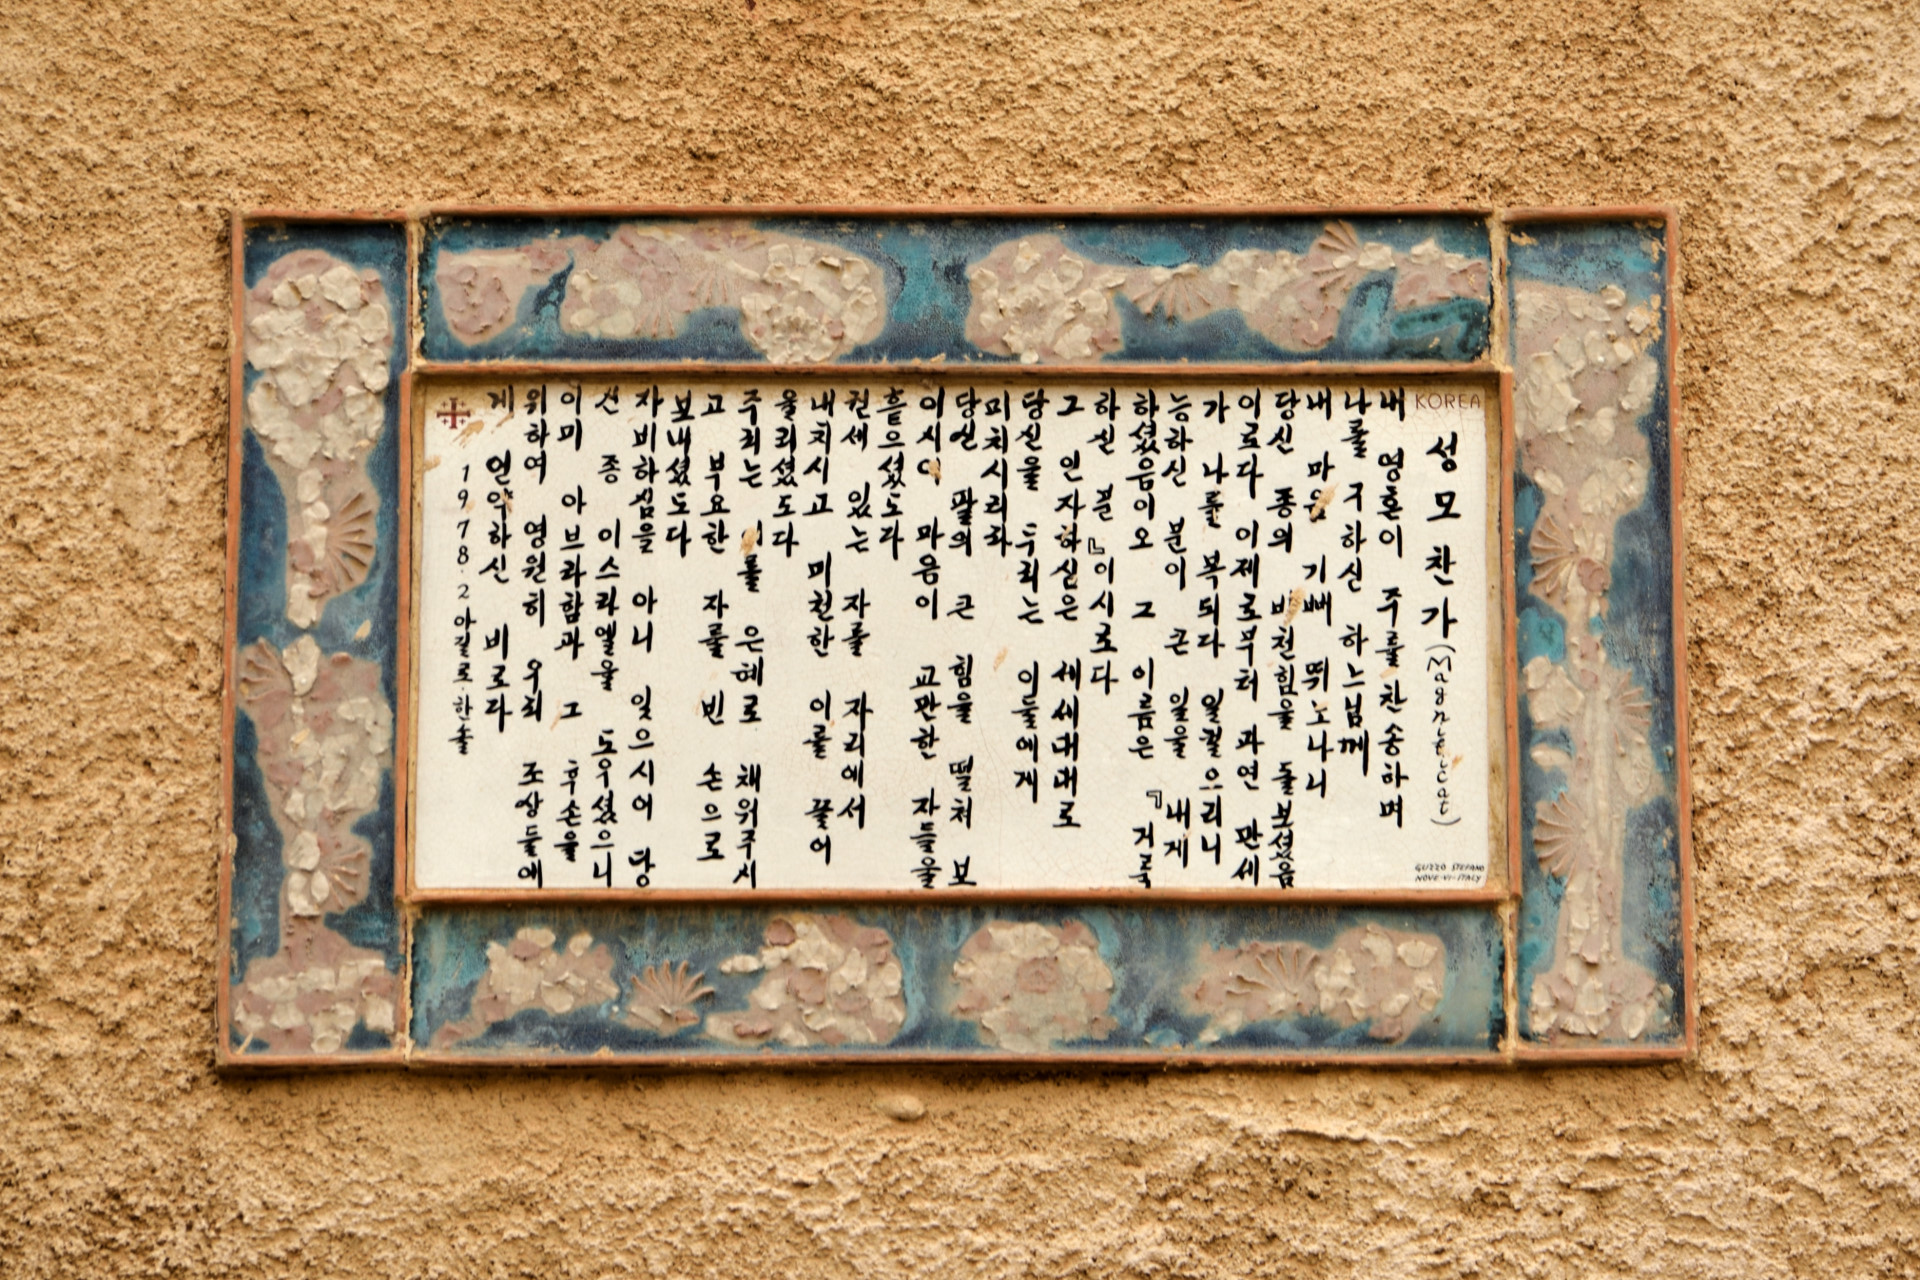 KOREA
성모찬가(Magnificat)
내 영혼이 주를 찬송하며
나를 구하신 하느님께
내 마음 기뻐 뛰노나니
당신 종의 비천함을 돌보셨음
이로다 이제로부터 과연 만세
가 나를 복되다 일컬으리니
능하신 분이 큰 일을 내게
하셨음이오 그 이름은 『거룩
하신 분』이시로다
그 인자하심은 세세대대로
당신을 두리는 이들에게
미치시리라
당신 팔의 큰 힘을 떨쳐 보
이시어 마음이 교만한 자들을
흩으셨도다
권세 있는 자를 자리에서
내치시고 미천한 이를 끌어
올리셨도다
주리는 이를 은혜로 채워주시
고 부요한 자를 빈 손으로
보내셨도다
자비하심을 아니 잊으시어 당
신 종 이스라엘을 도우셨으니
이미 아브라함과 그 후손을
위하여 영원히 우리 조상들에
게 언약하신 비로다
1978.2 아길로 한솔
GUZZO STEFANO
NOVE-VI-ITALY